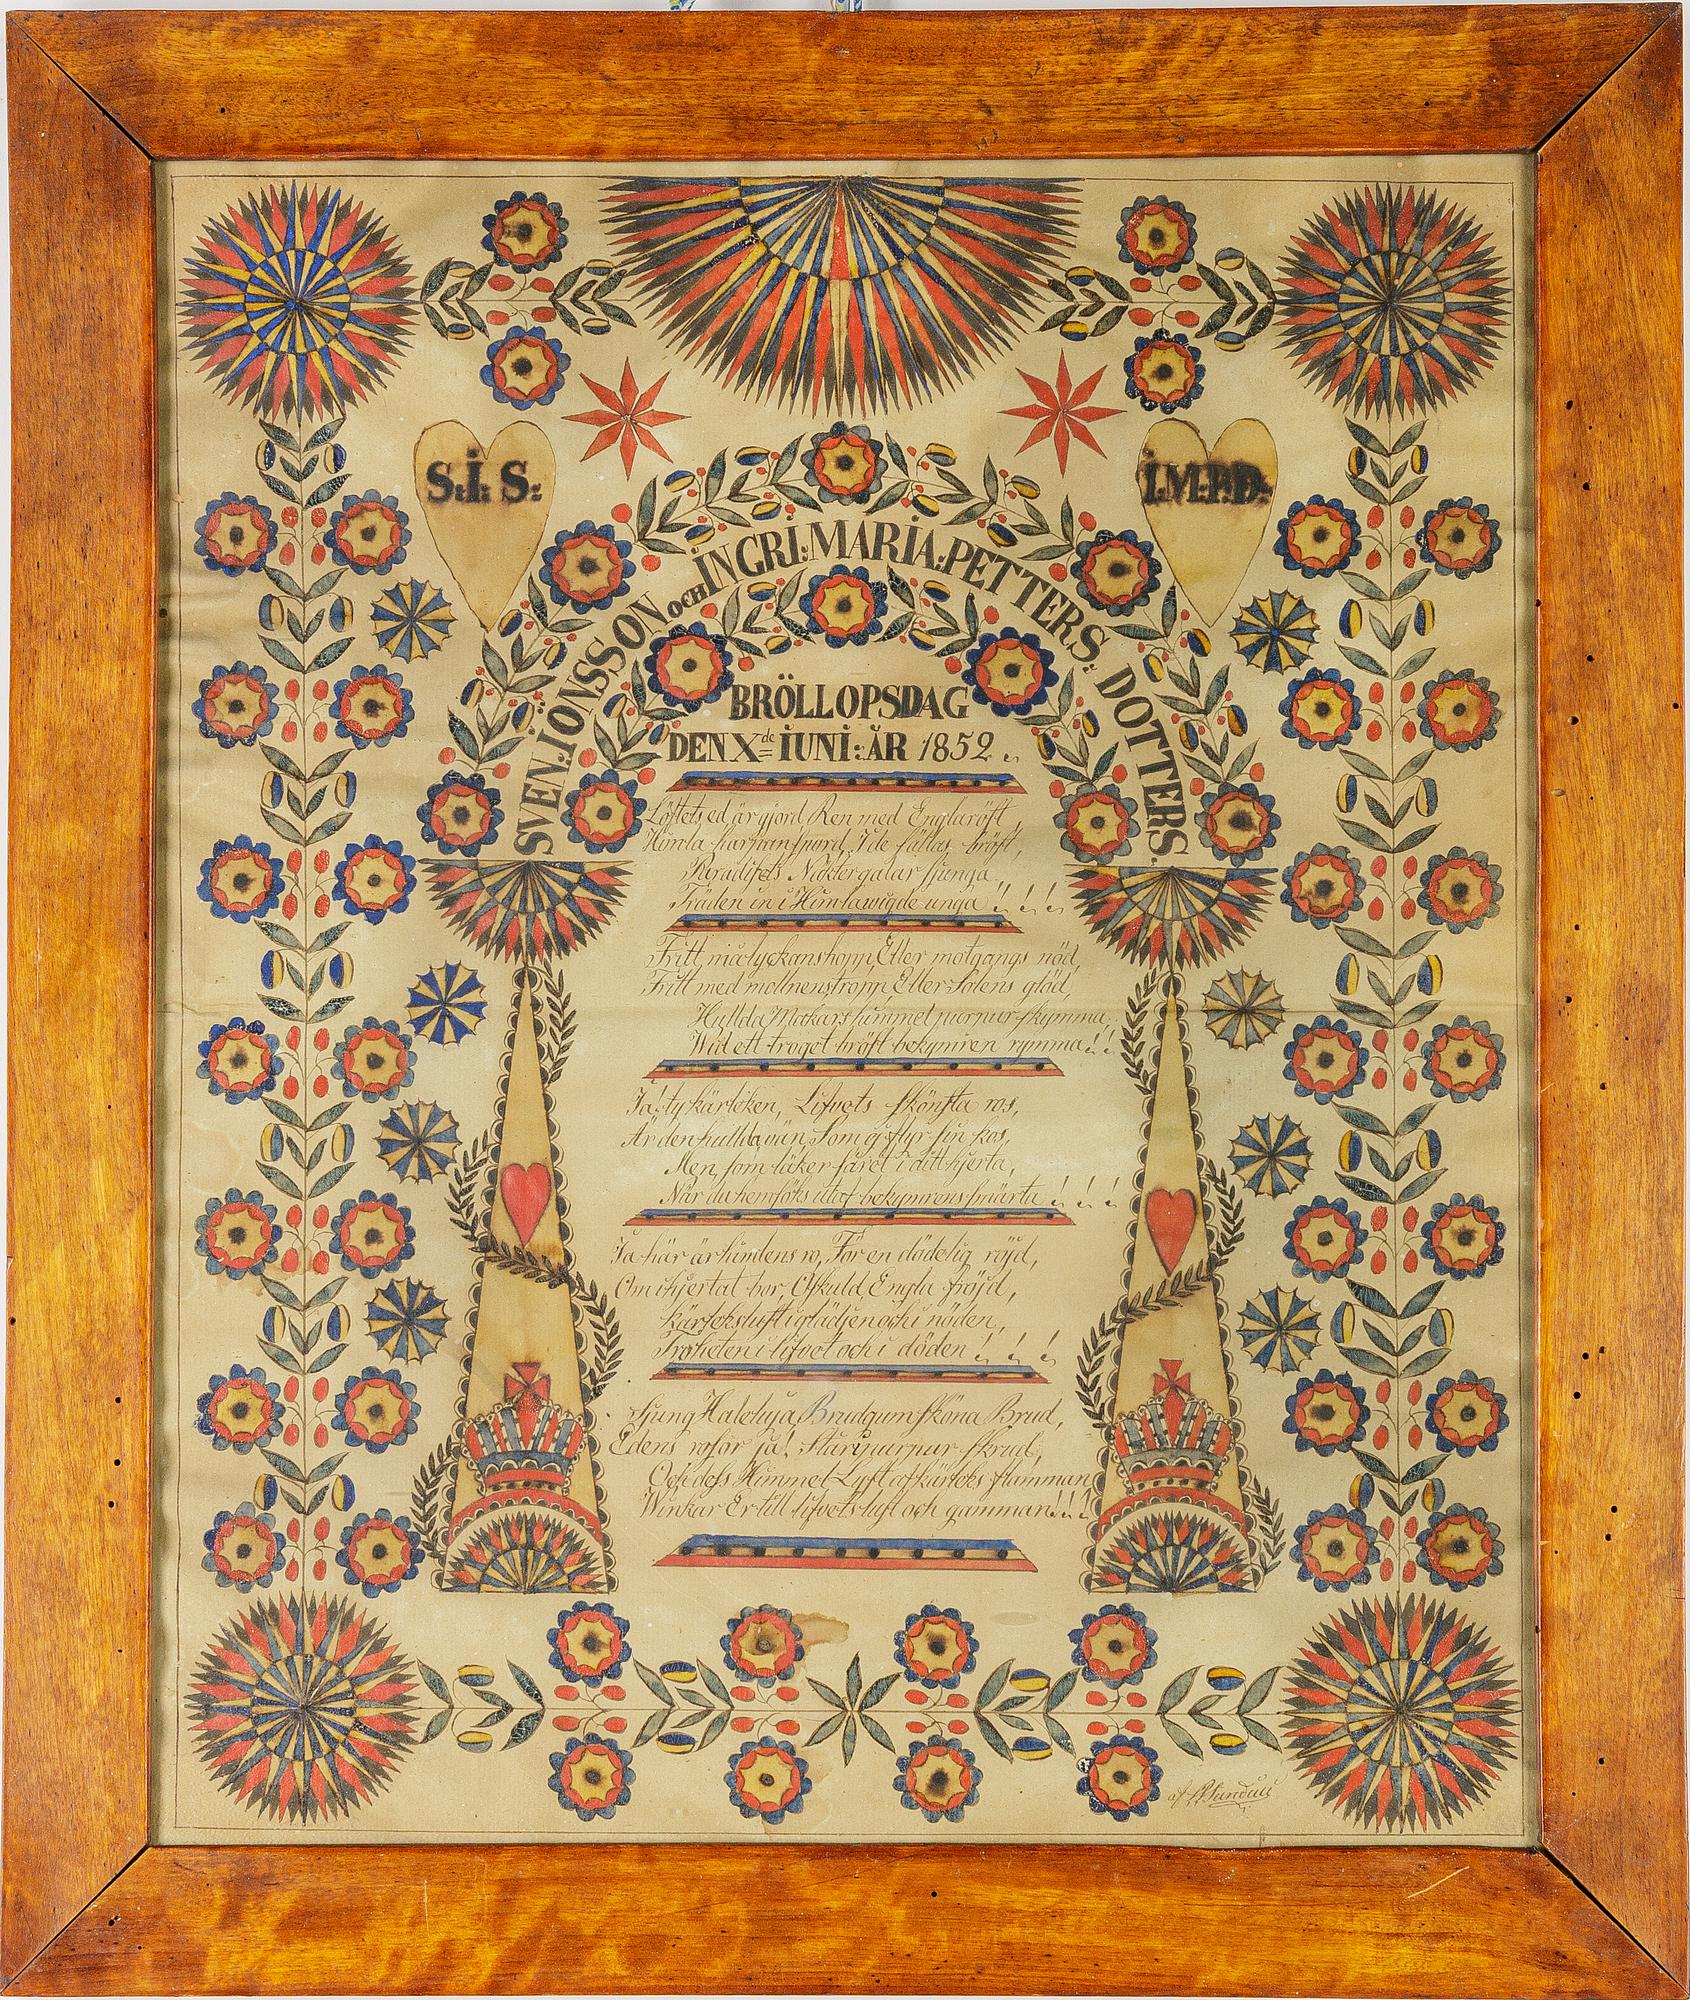 S:İ: S:
İ:M:P:D:
SVEN: İÖNSSON OCH İNGRİ: MARİA: PETTERS: DOTTERS.
BRÖLLOPSDAG
DEN X de İUNİ: ÅR 1852
Löftets ed är gjord Ren med Englaröst,
Himla harpan spord, I de sällas bröst,
Paradisets Näktergalar sjunga
Träden in i Himlawigde unga ! ! ! !
Fritt må lyckans hopp, Eller motgångs nöd,
Fritt med mollnens tropp, Eller Solens glöd,
Hullda Makars himmel purpur skymma
Wid ett troget bröst bekymren rymma ! !
Ja! ty kärleken, Lifvets skönsta ros,
Är den hullda vän Som ej flyr sin kos,
Men som läker såret i ditt hjerta,
När du hemsöks utaf bekymrens smärta ! ! !
Ja här är himlens ro, För en dödelig röjd,
Om i hjertat bor, Oskuld, Engla fröjd,
Kärleks luft i glädjen och i nöden,
Troheten i lifvet och i döden ! ! ! !
Sjung Haleluja Brudgum sköna Brud,
Edens rosor ja! skurpur skrud,
Och dess Himmel Lyst af kärleks flamman
Winkar Er till lifvets lust och gamman ! ! !
af